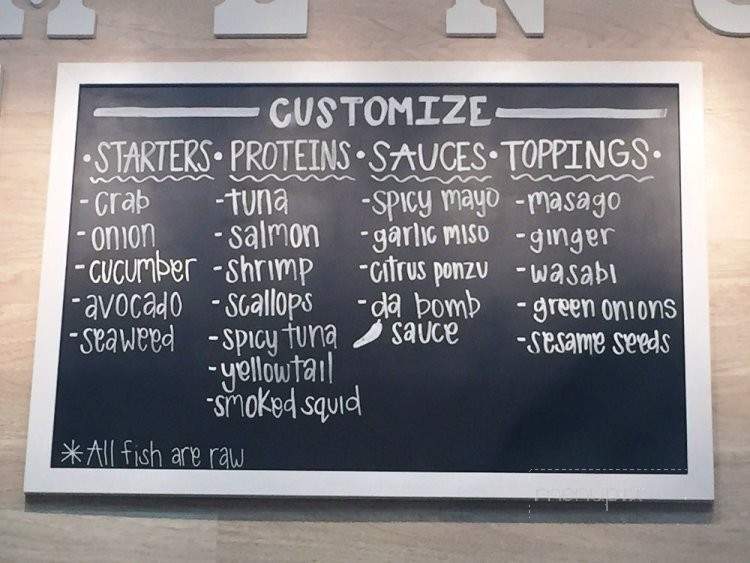 CUSTOMIZE
•STARTERS•PROTEINS•SAUCES•TOPPINGS•
-crab
-onion
-cucumber
-avocado
-seaweed
-tuna
-salmon
-shrimp
-scallops
-spicy tuna
-yellowtail
-smoked squid
-spicy mayo
-garlic miso
-citrus ponzu
-da bomb
sauce
-masago
-ginger
-wasabi
-green onions
-sesame seeds
*All fish are raw
menupix